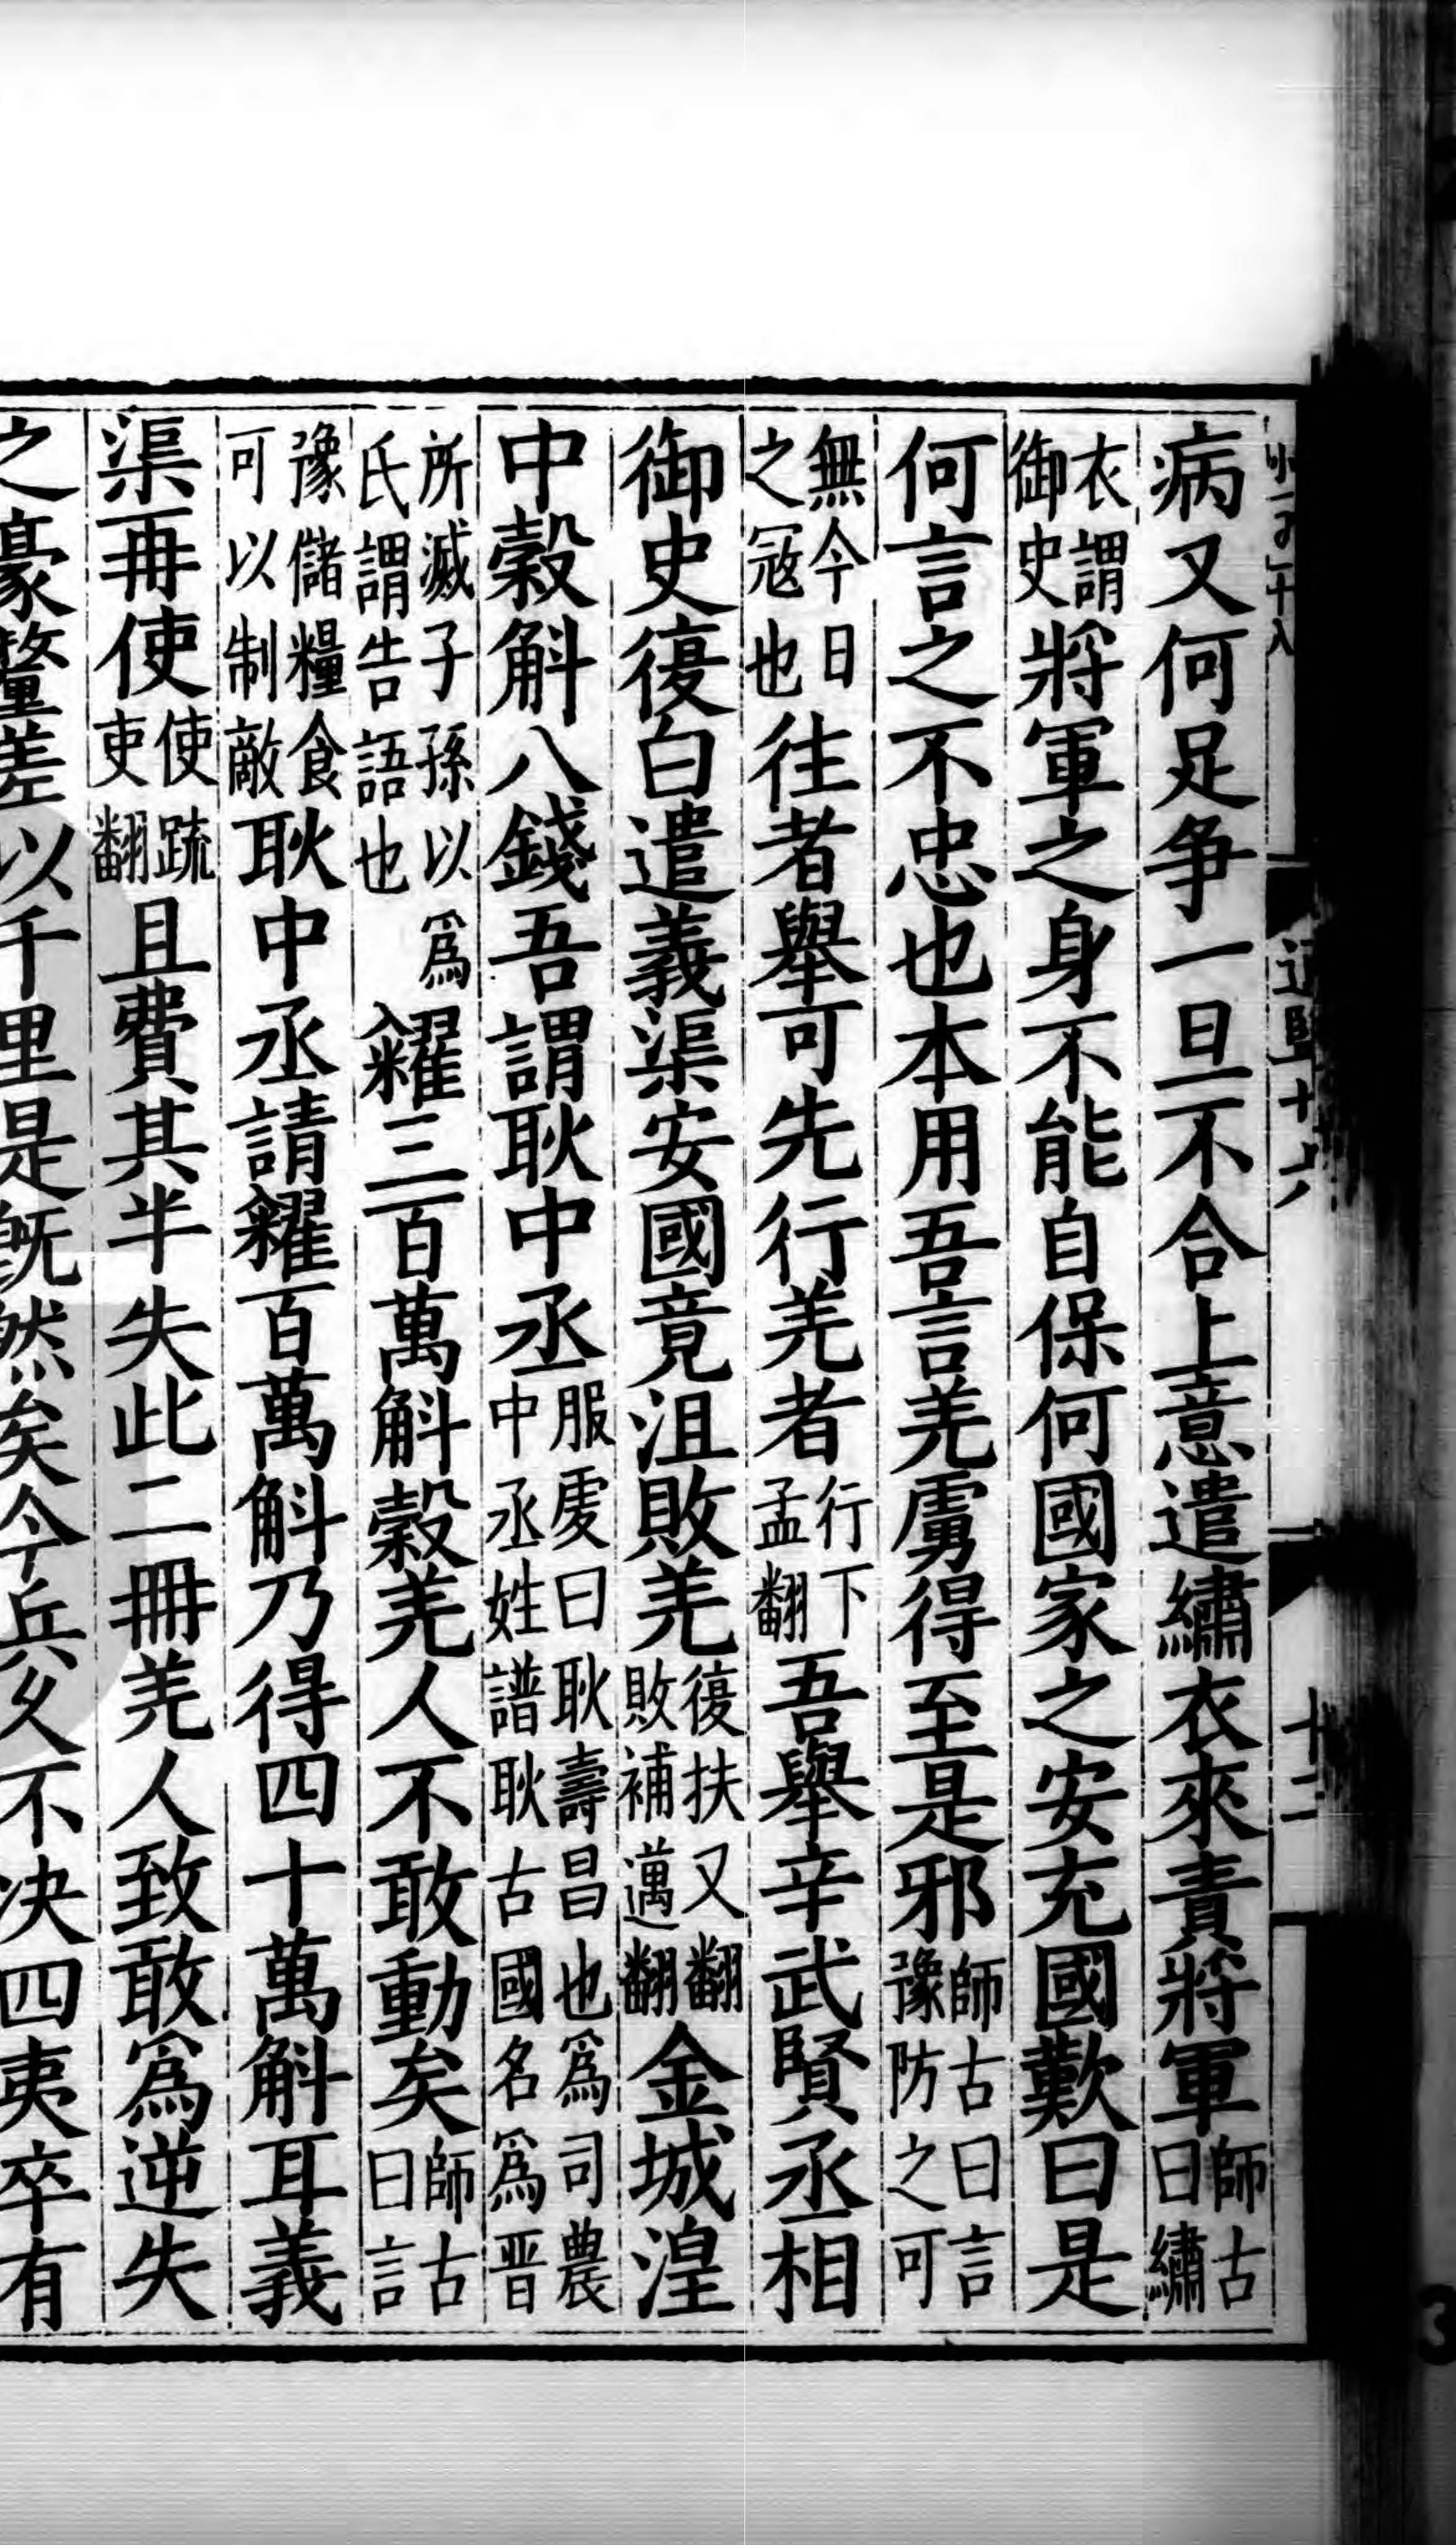 病又何足争一旦不合上意遣繡衣來責將軍師古曰繡
衣謂御史將軍之身不能自保何國家之安充國歎曰是
何言之不忠也本用吾言羌虜得至是邪師古曰言豫防之可
無今日之冦也往者舉可先行羌者行下孟翻吾舉辛武賢丞相
御史復白遣義渠安國竟沮敗羌復扶又翻敗補邁翻金城湟
中穀斛八錢吾謂耿中丞服䖏曰耿壽昌也爲司農中丞姓譜耿古國名爲晋
所滅子孫以爲氏謂告語也糴三百萬斛穀羌人不敢動矣師古曰言
豫儲糧食可以制敵耿中丞請糴百萬斛乃得四十萬斛耳義
渠再使使䟽吏翻且費其半失此二冊羌人致敢爲逆失
之豪釐差以千里是旣然矣今兵久不決四夷卒有
通鑑十
十二